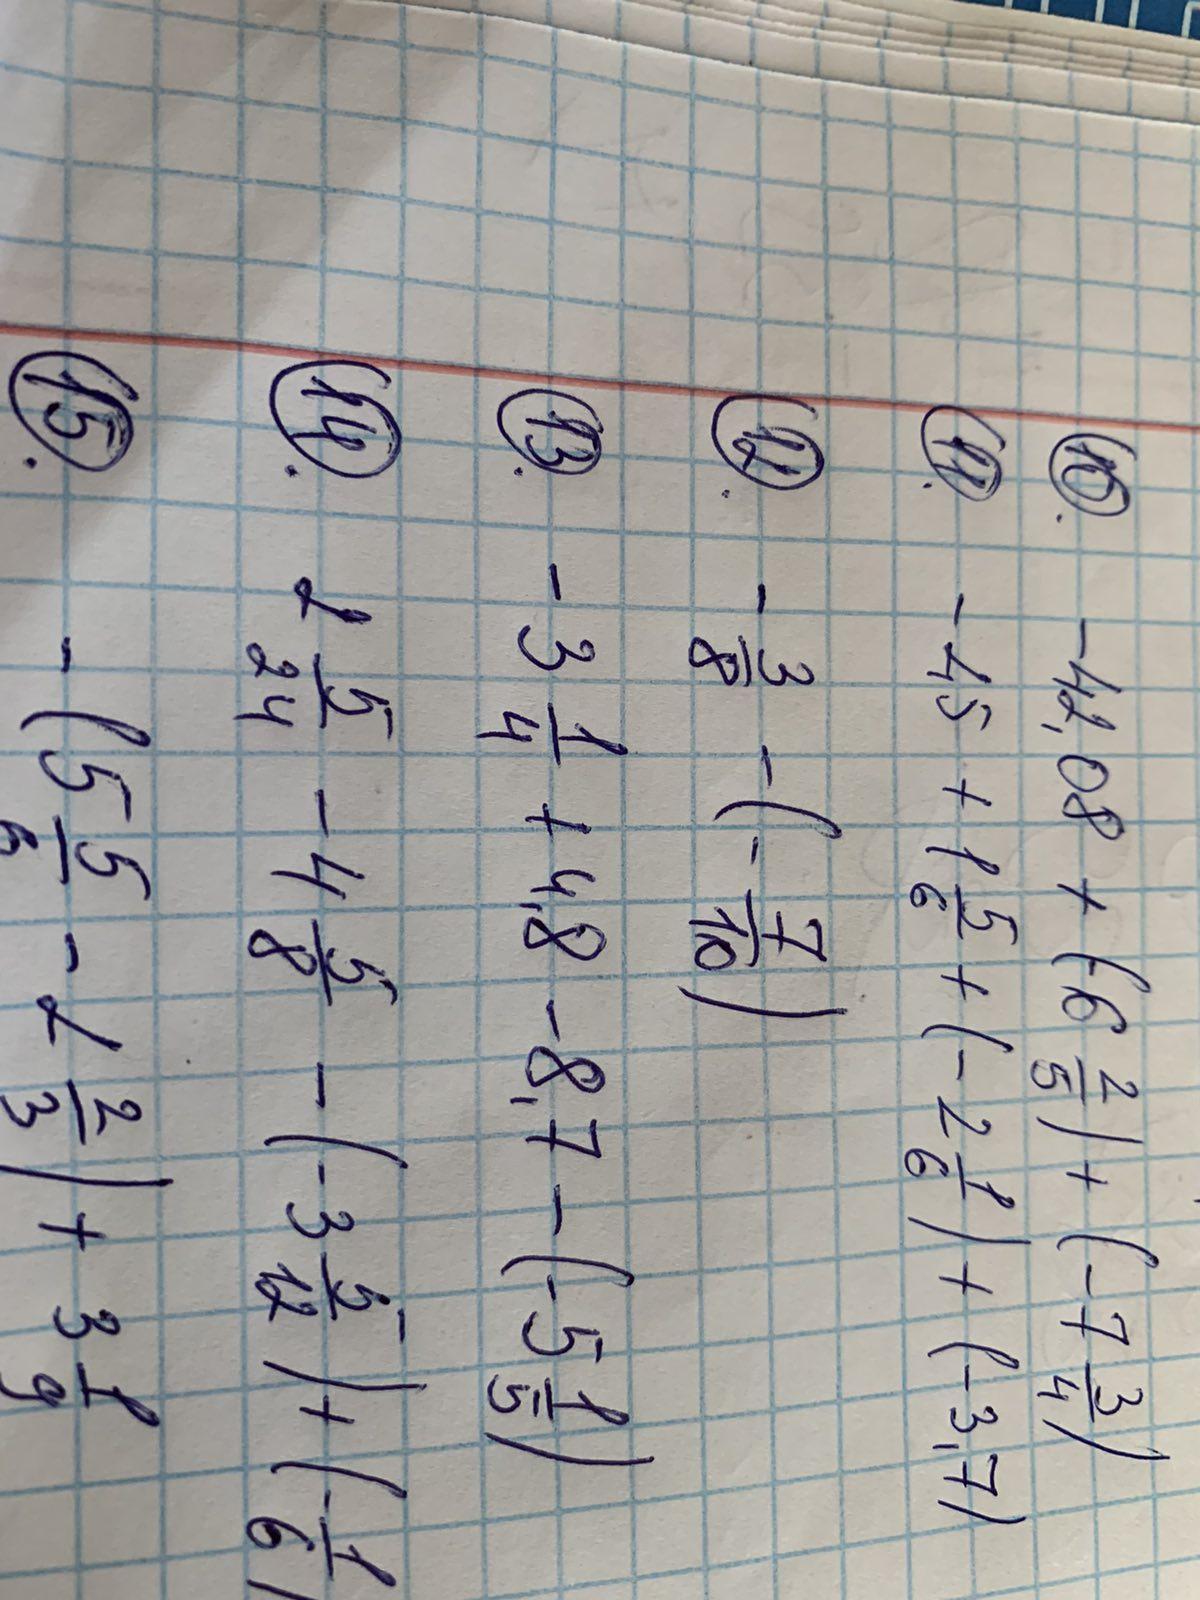 10. -42,08 + (6 2/5) + (-7 3/4)
11. -45 + 1 5/6 + (-2 1/6) + (-3,7)
12. -3/8 - (-7/10)
13. -3 1/4 + 4,8 - 8,7 - (-5 1/5)
14. 2 5/24 - 4 5/8 - (-3 5/12) + (-1/6)
15. -(5 5/6 - 2 2/3) + 3 1/9